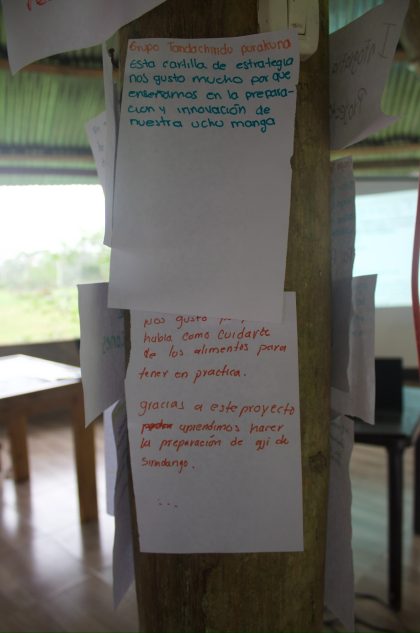 Grupo Tandachiridu purakuna
Esta cartilla de estrategia
nos gusto mucho por que
enseñamos en la prepara-
cion y innovación de
nuestra uchu manga
Nos gusto
habla como cuidarte
de los alimentos para
tener en practica.
gracias a este proyecto
aprendimos hacer
la preparación de aji de
Sirindango.
...